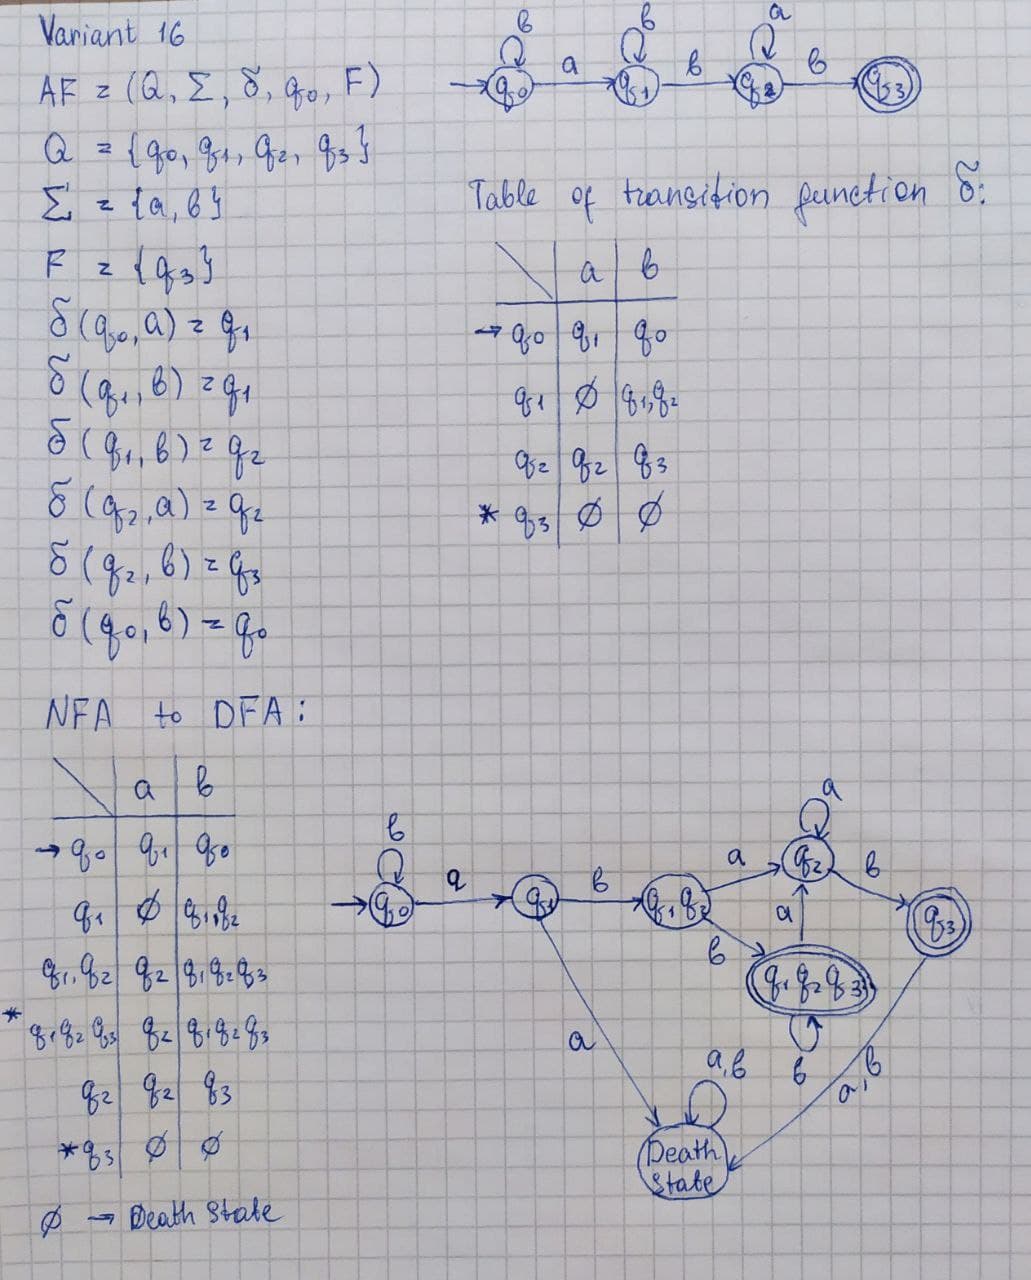 Variant 16
AF = (Q, Σ, δ, q0, F)
Q = {q0, q1, q2, q3}
Σ = {a, b}
F = {q3}
δ(q0, a) = q1
δ(q1, b) = q1
δ(q1, b) = q2
δ(q2, a) = q2
δ(q2, b) = q3
δ(q0, b) = q0
b b a
→ q0 a q1 b q2 b q3
Table of transition function δ:
a b
→ q0 q1 q0
q1 ∅ q1,q2
q2 q2 q3
* q3 ∅ ∅
NFA to DFA:
a b
→ q0 q1 q0
q1 ∅ q1,q2
q1,q2 q2 q1q2q3
* q1q2q3 q2 q1q2q3
q2 q2 q3
* q3 ∅ ∅
∅ → Death State
a
b a q2 b
→ q0 a q1 b q1q2 a q3
b q1q2q3
a b a,b
a,b
Death
State